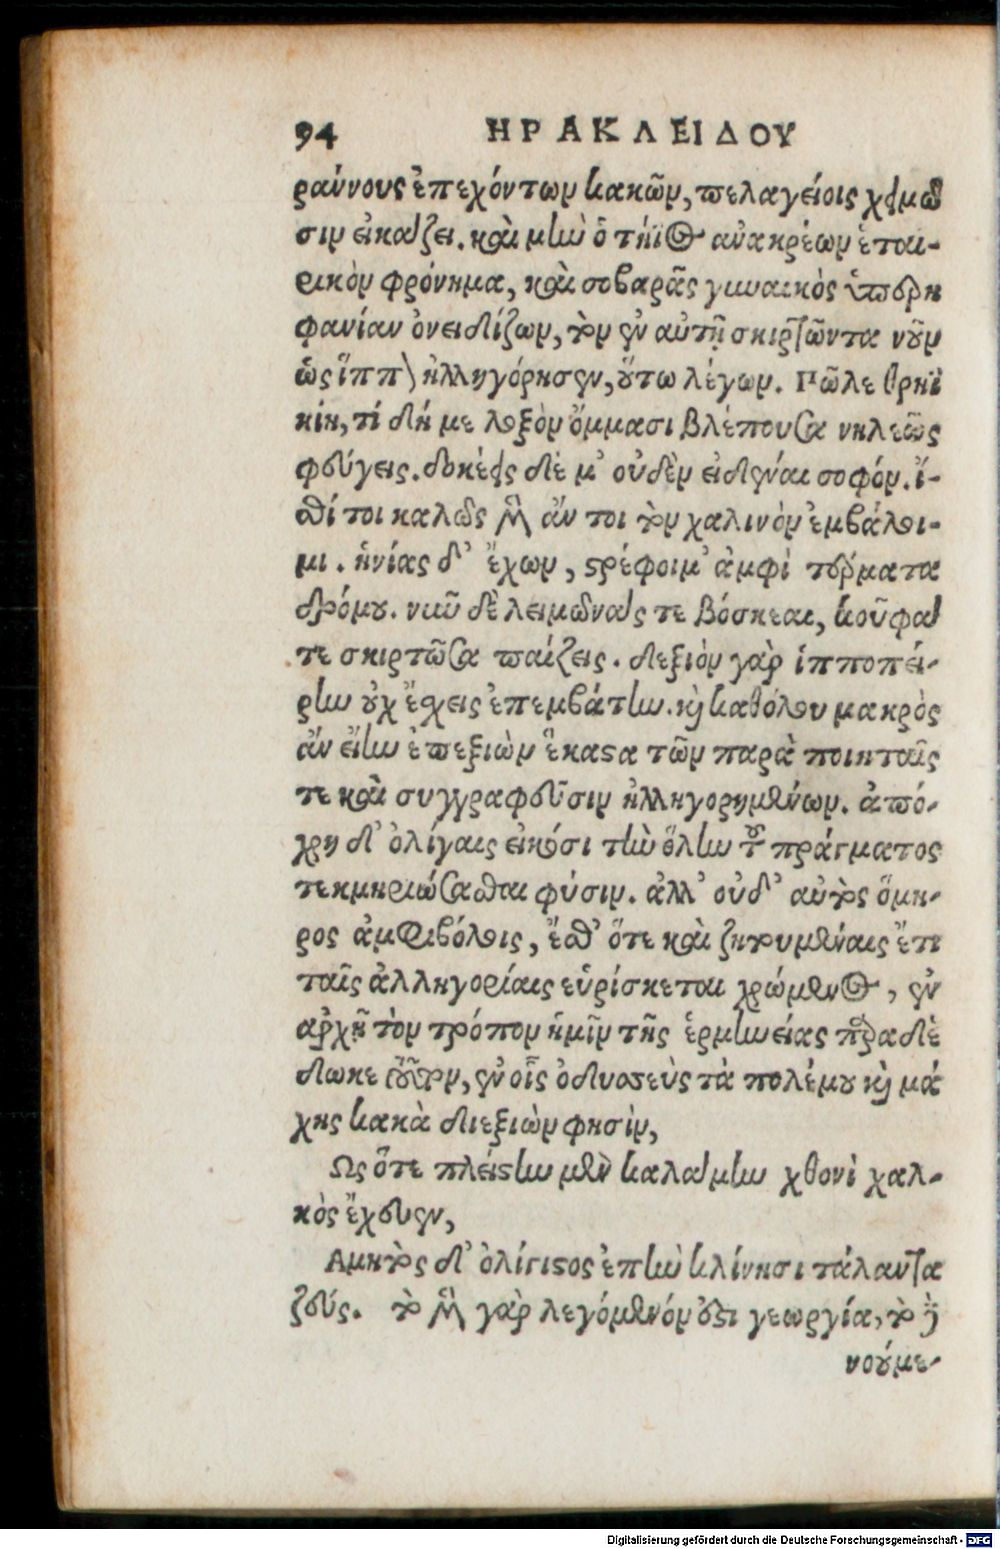 94 ΗΡΑΚΛΕΙΔΟΥ
ραύνους ἐπεχόντων κακῶν, πελαγείοις χειμῶ
σιν εἰκάζει. καὶ μὴν ὁ τήϊος ἀνακρέων ἑται-
ρικὸν φρόνημα, καὶ σοβαρᾶς γυναικὸς ὑπερη
φανίαν ὀνειδίζων, τὸν ἐν αὐτῇ σκιρτῶντα νοῦν
ὡς ἵππον ἠλληγόρησεν, οὕτω λέγων. Πῶλε θρηϊ
κίη, τί δή με λοξὸν ὄμμασι βλέπουσα νηλεῶς
φεύγεις. δοκέεις δέ μ' οὐδὲν εἰδέναι σοφόν. ἴ-
σθί τοι καλῶς μὲν ἄν τοι τὸν χαλινὸν ἐμβάλοι-
μι. ἡνίας δ' ἔχων, στρέφοιμ' ἀμφὶ τέρματα
δρόμου. νῦν δὲ λειμῶνας τε βόσκεαι, κοῦφα
τε σκιρτῶσα παίζεις. δεξιὸν γὰρ ἱπποπεί-
ρην οὐχ ἔχεις ἐπεμβάτην. καὶ καθόλου μακρὸς
ἂν εἴην ἐπεξιὼν ἕκαστα τῶν παρὰ ποιηταῖς
τε καὶ συγγραφεῦσιν ἠλληγορημένων. ἀπό-
χρη δ' ὀλίγαις εἰκόσι τὴν ὅλην τοῦ πράγματος
τεκμηριώσασθαι φύσιν. ἀλλ' οὐδ' αὐτὸς ὅμη-
ρος ἀμφιβόλοις, ἔσθ' ὅτε καὶ ζητουμέναις ἔτι
ταῖς ἀλληγορίαις εὑρίσκεται χρώμενος, ἐν
ἀρχῇ τὸν τρόπον ἡμῖν τῆς ἑρμηνείας παραδέ
δωκε τοῦτον, ἐν οἷς ὀδυσσεὺς τὰ πολέμου καὶ μά
χης κακὰ διεξιὼν φησὶν,
Ως ὅτε πλείστην μὲν καλάμην χθονὶ χαλ-
κὸς ἔχευεν,
Αμητὸς δ' ὀλίγιστος ἐπὴν κλίνησι τάλαντα
ζεύς. τὸ μὲν γὰρ λεγόμενόν ἐστι γεωργία, τὸ δὲ
νούμε-
Digitalisierung gefördert durch die Deutsche Forschungsgemeinschaft - DFG